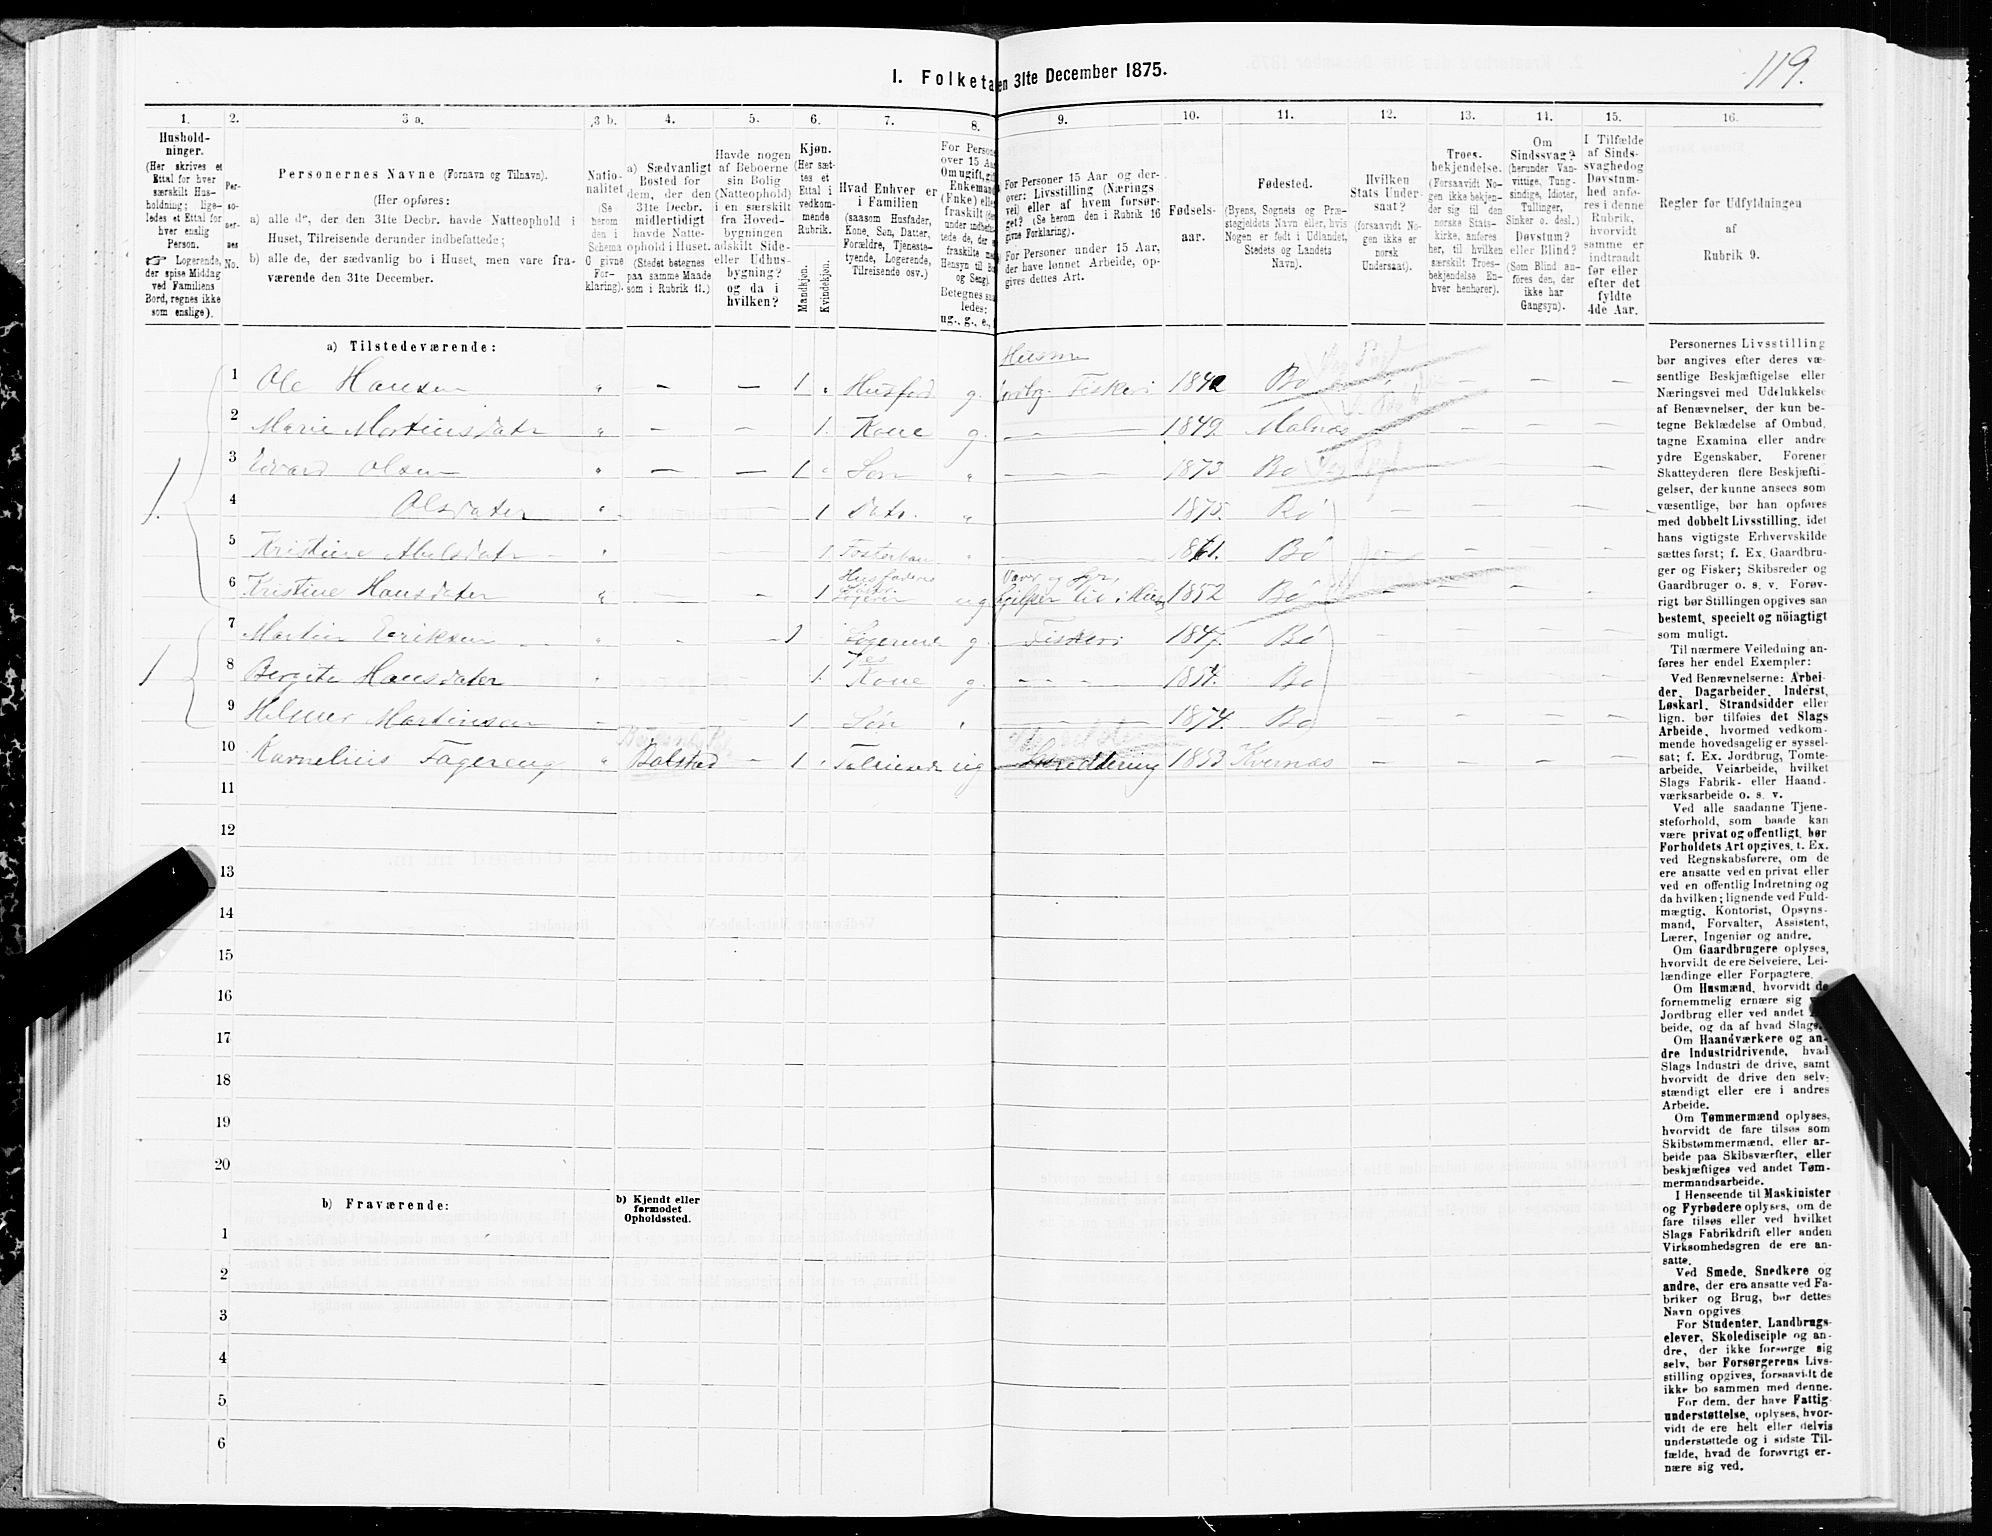 119.
I. Folketa en 31te December 1875.
1.
Hushold-
ninger.
(Her skrives et
Ettal for hver
særskilt Hus-
holdning; lige-
ledes et Ettal for
hver enslig
Person.
Logerende,
der spise Middag
ved Familiens
Bord, regnes ikke
som enslige).
2.
Per-
so-
ner-
nes
No.
3 a.
Personernes Navne (Fornavn og Tilnavn).
(Her opføres:
a) alle de, der den 31te Decbr. havde Natteophold i
Huset, Tilreisende derunder indbefattede;
b) alle de, der sædvanlig bo i Huset, men vare fra-
værende den 31te December.
3 b.
Natio-
nalitet
(Se
herom
den i
Schema
G givne
For-
klaring).
4.
a) Sædvanligt
Bosted for
dem, der den
31te Decbr.
midlertidigt
havde Natte-
ophold i Huset.
(Stedet betegnes
paa samme Maade
som i Rubrik 11.)
5.
Havde nogen
af Beboerne
sin Bolig
(Natteophold)
i en særskilt
fra Hoved-
bygningen
adskilt Side-
eller Udhus-
bygning?
og da i
hvilken?
6.
Kjøn.
(Her sæt-
tes et
Ettal i
vedkom-
mende
Rubrik.
Mandkjøn.
Kvindekjøn.
7.
Hvad Enhver er
i Familien
(saasom Husfader,
Kone, Søn, Datter,
Forældre, Tjeneste-
tyende, Logerende,
Tilreisende osv.)
8.
For Person
over 15 Aar
Om ugift, gif
Enkemand
(Enke) eller
fraskilt
Hensyn til Bo
og Seng).
Betegnes saa
ledes:
ug., g., e.,
9.
For Personer 15 Aar og der-
over: Livsstilling (Nærings
vei) eller af hvem forsør-
get? (Se herom den i Rubrik 16
givne Forklaring).
For Personer under 15 Aar,
der have lønnet Arbeide, op-
gives dettes Art.
10.
Fødsels-
aar.
11.
Fødested.
(Byens, Sognets og Præ-
stegjeldets Navn eller, hvis
Nogen er født i Udlandet,
Stedets og Landets
Navn).
12.
Hvilken
Stats Under-
saat?
(forsaavidt No-
gen ikke er
norsk
Undersaat).
13.
Troes-
bekjendelse.
(Forsaavidt No-
gen ikke bekjen-
der sig til den
norske Stats-
kirke, anføres
her, til hvilken
særskilt Troes-
bekjendelse En-
hver henhører).
14.
Om
Sindssvag?
(herunder Van-
vittige, Tung-
sindige, Idioter,
Tullinger,
Sinker o. desl.)
Døvstum?
eller Blind?
(Som Blind an-
føres den, der
ikke har
Gangsyn).
15.
I Tilfælde
af Sinds-
svaghed og
Døvstum-
hed anfø-
res i denne
Rubrik,
hvorvidt
samme er
indtraadt
før eller
efter det
fyldte
4de Aar.
16.
Regler for Udfyldningen
af
Rubrik 9.
a) Tilstedeværende:
Husm
1 Ole Hansen " — — 1 Husfad g. Fiskeri 184 Bø
2 Marie Martinsdatr " — — 1. Kone g. — 1849. Malnæs
3 Edvard Olsen " — — 1 Søn " — 1873 Bø
4 Olsdater " 1 Datr. " 1875. Bø
5 Kristine Abelsdatr 1 Fosterbarn " 1861. Bø
6 Kristine Hansdater " — 1 Husfaderens ug 1852 Bø
7 Martin Eriksen " 1 Logerende g. Fiskeri 1847. Bø
8 Bergite Hansdater " 1. Kone g. 1854. Bø
9 Helmer Martinsen 1 Søn 1874. Bø
10 Karnelius Fagereng " Bolstad — 1 Tilreisende ug Skreddering 1853 Kvernæs
11
12
13
14
15
16
17
18
19
20
b) Fraværende:
b) Kjendt eller
formodet
Opholdssted.
1
2
3
4
5
6
Personernes Livsstilling
bør angives efter deres væ-
sentlige Beskjæftigelse eller
Næringsvei med Udelukkelse
af Benævnelser, der kun be-
tegne Beklædelse af Ombud,
tagne Examina eller andre
ydre Egenskaber. Forener
Skatteyderen flere Beskjæfti-
gelser, der kunne ansees som
væsentlige, bør han opføres
med dobbelt Livsstilling, idet
hans vigtigste Erhvervskilde
sættes først; f. Ex. Gaardbru-
ger og Fisker; Skibsreder og
Gaardbruger o. s. v. Forøv-
rigt bør Stillingen opgives saa
bestemt, specielt og nöiagtigt
som muligt.
Til nærmere Veiledning an-
føres her endel Exempler:
Ved Benævnelserne: Arbei-
der, Dagarbeider, Inderst,
Løskarl, Strandsidder eller
lign. bør tilføies det Slags
Arbeide, hvormed vedkom-
mende hovedsagelig er syssel-
sat; f. Ex. Jordbrug, Tomte-
arbeide, Veiarbeide, hvilket
Slags Fabrik- eller Haand-
værksarbeide o. s. v.
Ved alle saadanne Tjene-
steforhold, som baade kan
være privat og offentligt, bør
Forholdets Art opgives, t. Ex.
ved Regnskabsførere, om de
ere ansatte ved en privat eller
ved en offentlig Indretning og
da hvilken; lignende ved Fuld-
mægtig, Kontorist, Opsyns-
mand, Forvalter, Assistent,
Lærer, Ingeniør og andre.
Om Gaardbrugere oplyses,
hvorvidt de ere Selveiere, Lei-
lændinge eller Forpagtere.
Om Husmænd, hvorvidt de
fornemmelig ernære sig v
Jordbrug eller ved andet
beide, og da af hvad Slags.
Om Haandværkere og an-
dre Industridrivende, hvad
Slags Industri de drive, samt
hvorvidt de drive den selv-
stændigt eller ere i andres
Arbeide.
Om Tømmermænd oplyses,
hvorvidt de fare tilsøs som
Skibstømmermænd, eller ar-
beide paa Skibsværfter, eller
beskjæftiges ved andet Tøm-
mermandsarbeide.
I Henseende til Maskinister
og Fyrbødere oplyses, om de
fare tilsøs eller ved hvilket
Slags Fabrikdrift eller anden
Virksomhedsgren de ere an-
satte.
Ved Smede, Snedkere og
andre, der ere ansatte ved Fa-
briker og Brug, bør dettes
Navn opgives
For Studenter, Landbrugs-
elever, Skoledisciple og an-
dre, der ikke forsørge sig
selv, bør Forsørgerens Livs-
stilling opgives, forsaavidt de
ikke bo sammen med denne.
For dem, der have Fattig-
understøttelse, oplyses, hvor-
vidt de ere helt eller delvis
understøttede og i sidste Til-
fælde, hvad de forøvrigt er-
nære sig ved.